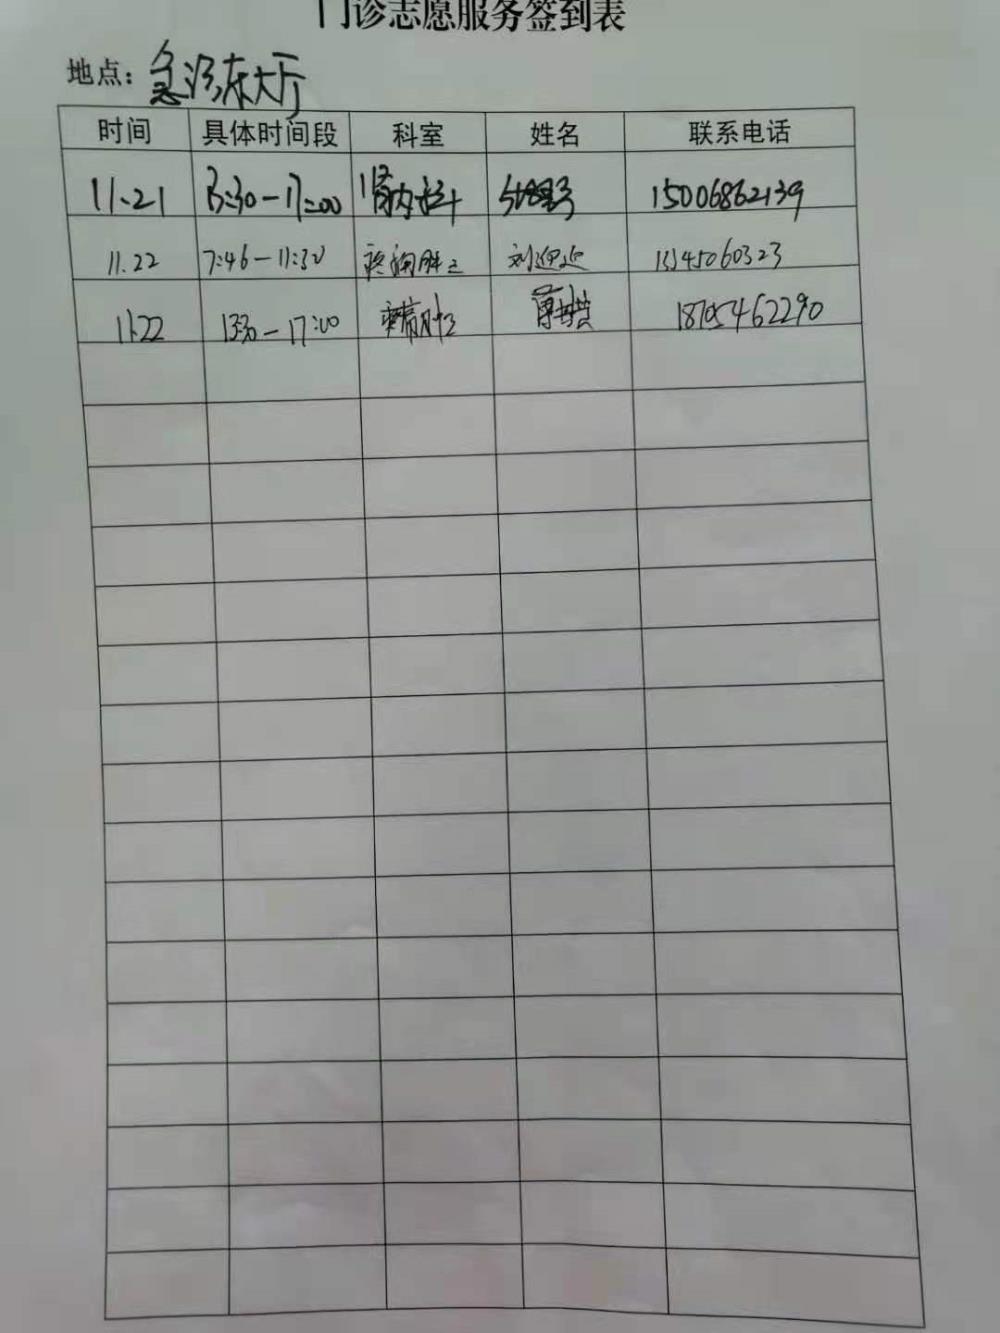 门诊志愿服务签到表
地点：急诊东大厅
时间 具体时间段 科室 姓名 联系电话
11.21 13:30-17:00 肾内科 15006862139
11.22 7:46-11:30 刘迎迎
11.22 13:30-17:00 18705462290